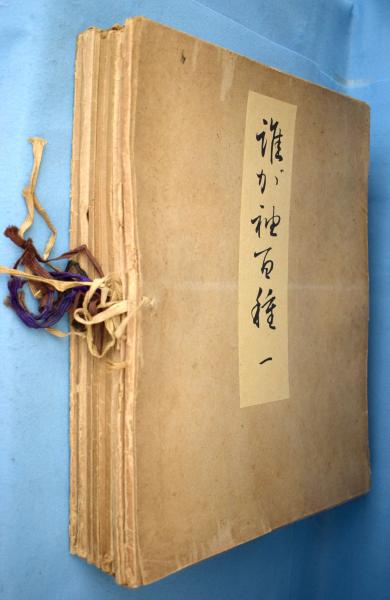 誰が袖百種 一